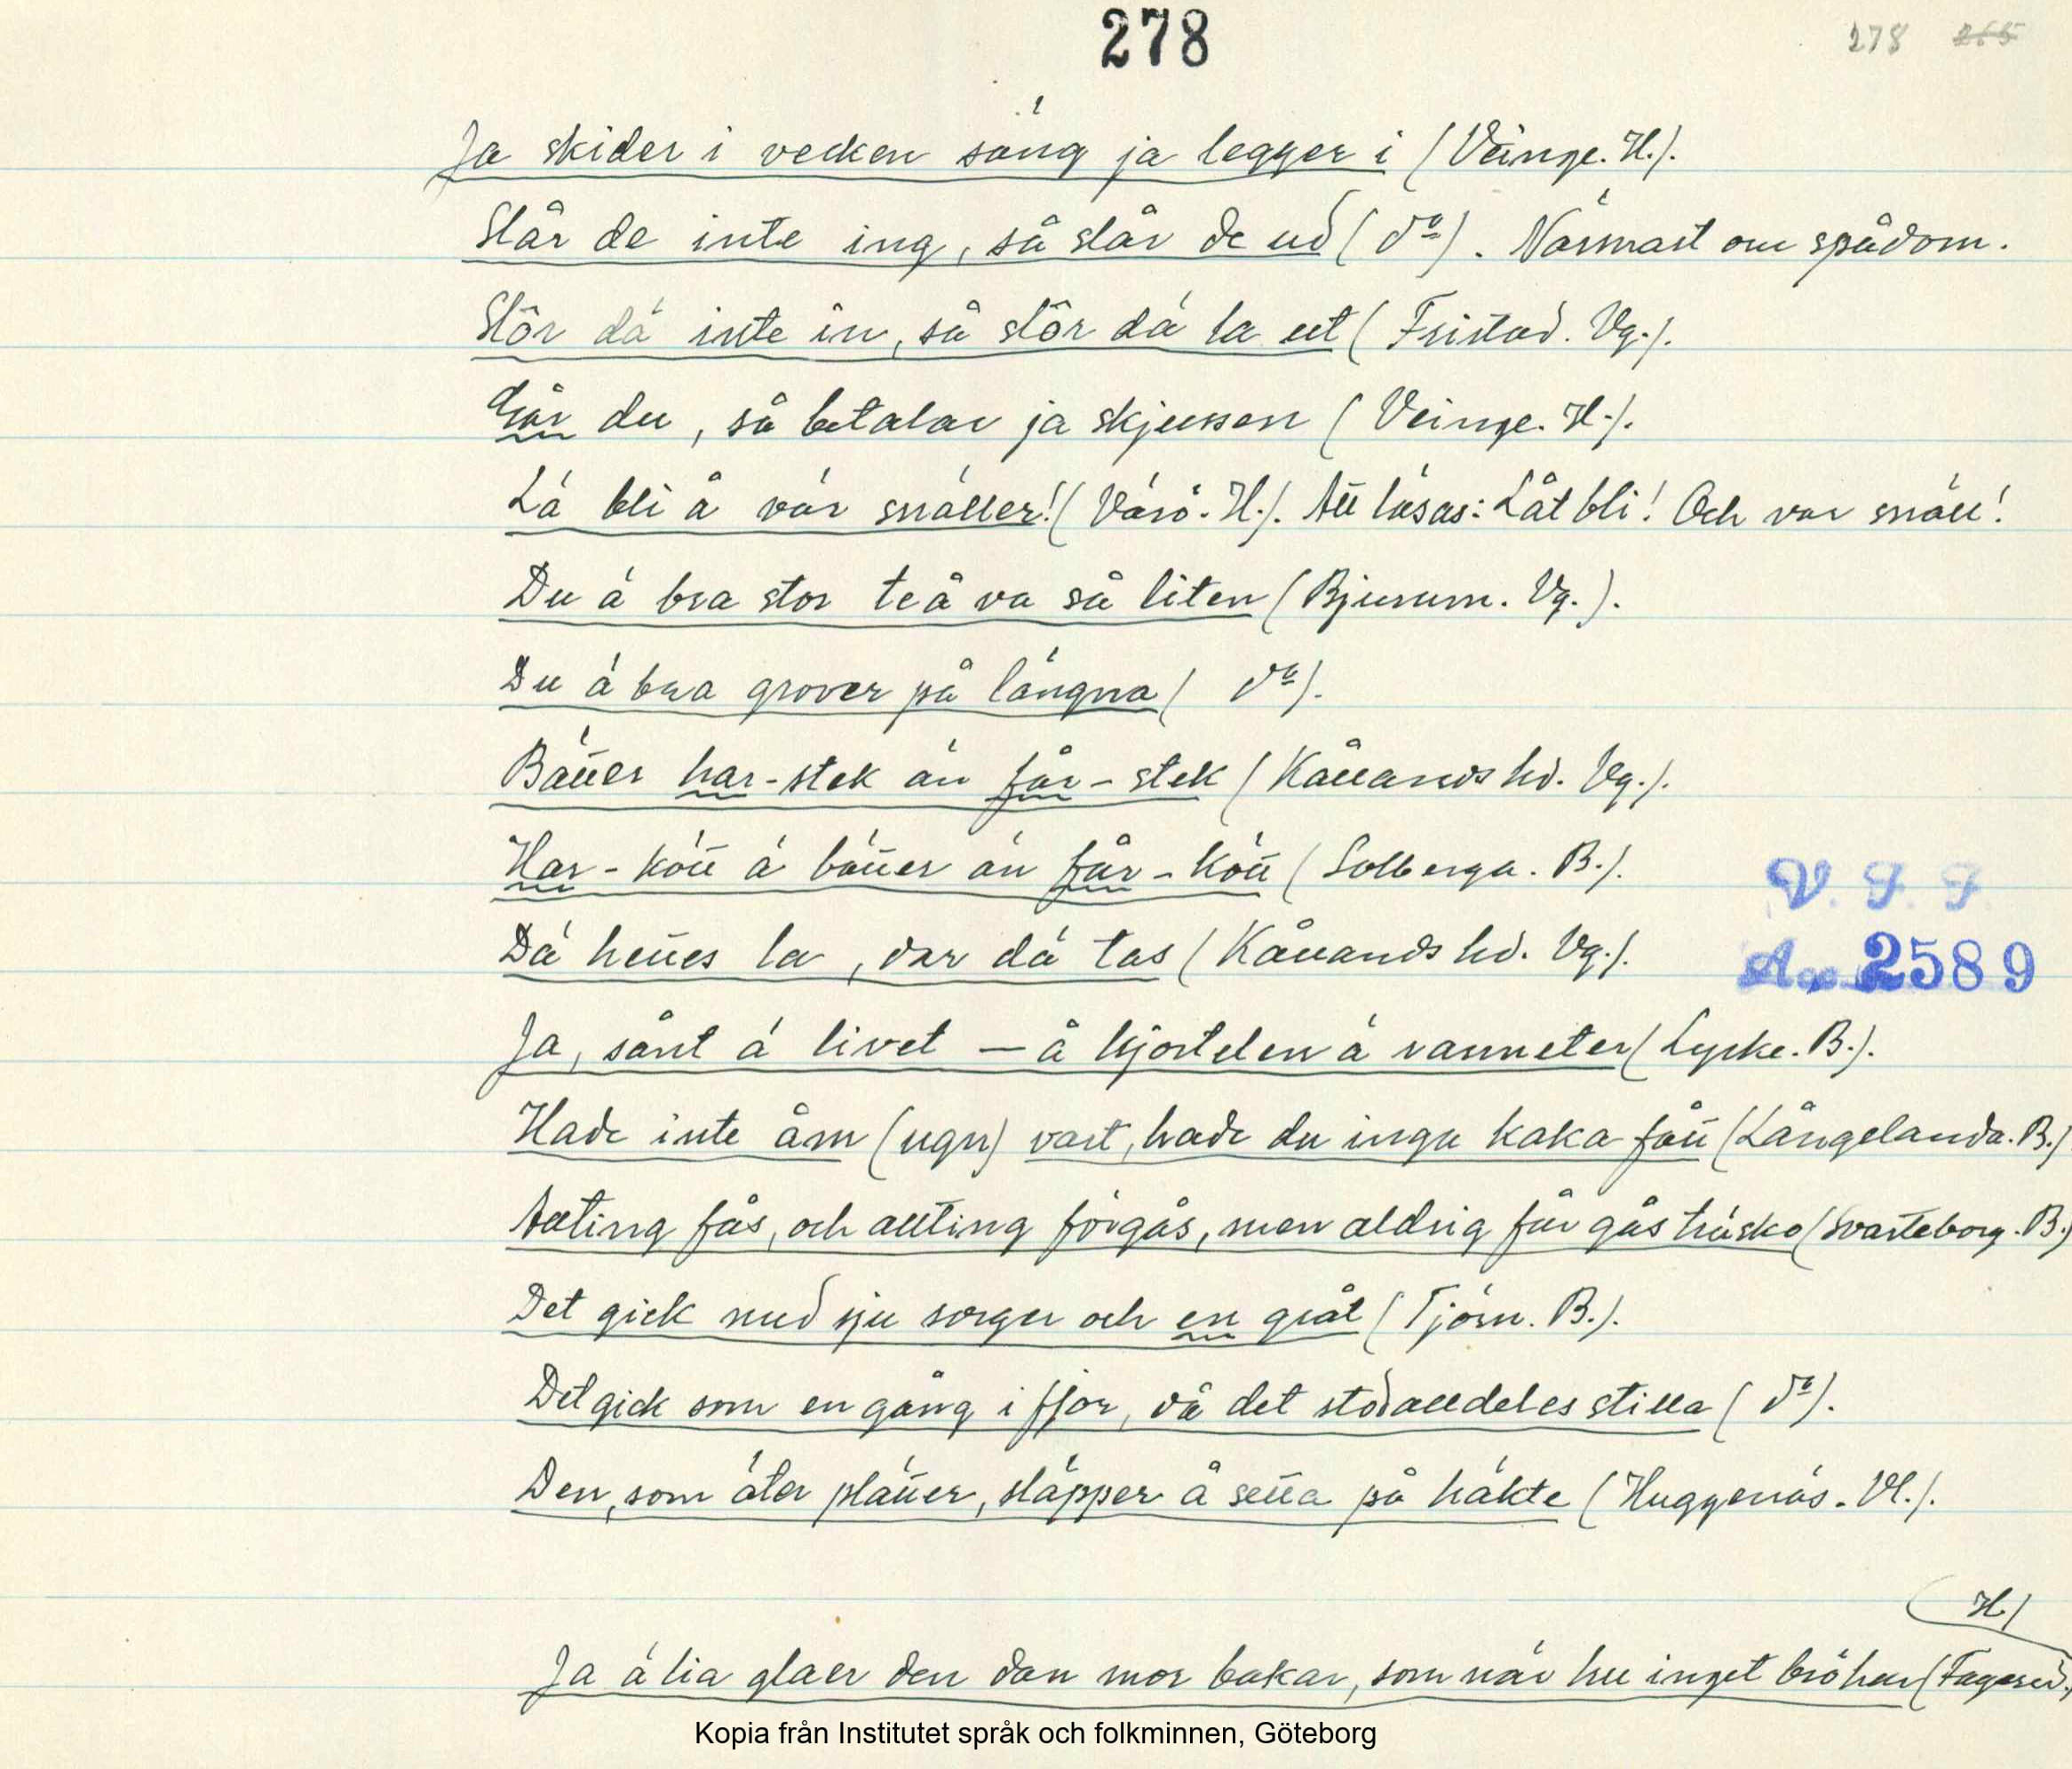 278
278 265
Ja skider i vecken säng ja legger i (Veinge. H.).
Slår de inte ing, så slår de ud (dº). Närmast om spådom.
Slôr dä inte in, så slôr dä la ut (Fristad. Vg.).
Går du, så betalar ja skjussen (Veinge. H.).
Lä bli å vär snäller! (Värö. H.). Att läsas: Låt bli! Och var snäll!
Du ä bra stor te å va så liten (Bjurum. Vg.).
Du ä bra grover på längna (dº).
Bätter har-stek än får-stek (Kållands hd. Vg.).
Har-kött ä bätter än får-kött (Solberga. B.).
Dä hettes la, dar dä tas (Kållands hd. Vg.).
V. F. F.
Acc 2589
Ja, sånt ä livet — å kjortelen ä vanneter (Lycke. B.).
Hade inte åm (ugn) vart, hade du inga kaka fått (Långelanda. B.)
Allting fås, och allting förgås, men aldrig får gås träsko (Svarteborg. B.)
Det gick med sju sorger och en gråt (Tjörn. B.).
Det gick som en gång i fjor, då det stod alldeles stilla (dº).
Den, som äter plätter, släpper å setta på häkte (Huggenäs. Vl.).
H.)
Ja ä lia glaer den dan mor bakar, som när hu inget brö har (Fagered.
Kopia från Institutet språk och folkminnen, Göteborg